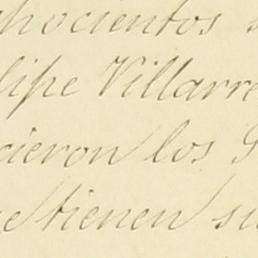 ochocientos s
lipe Villarre
cieron los S
e tienen su